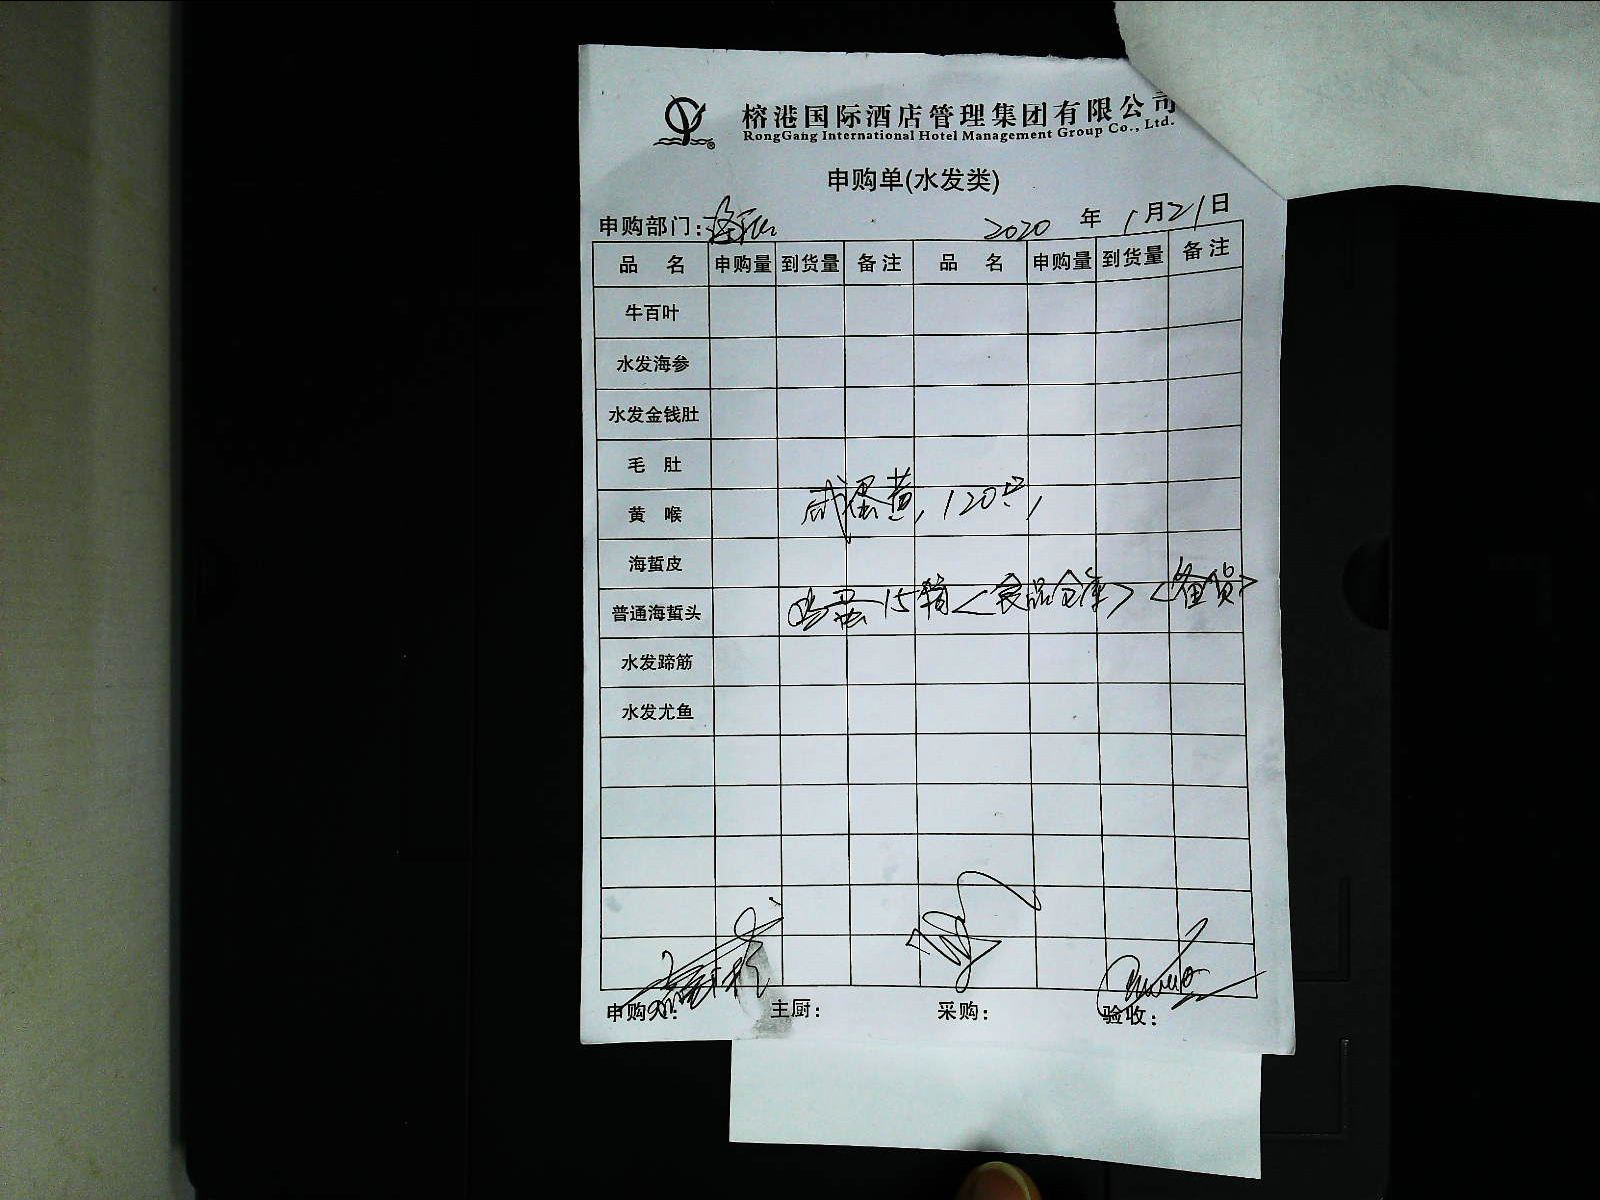 榕港国际酒店管理集团有限公司
RongGang International Hotel Management Group Co., Ltd.
申购单(水发类)
申购部门: 2020 年 1月21日
品 名 申购量 到货量 备注 品 名 申购量 到货量 备注
牛百叶
水发海参
水发金钱肚
毛 肚
黄 喉 咸蛋黄, 120只,
海蜇皮
普通海蜇头 鸡蛋15箱<食品仓库><备货>
水发蹄筋
水发尤鱼
申购人: 主厨: 采购: 验收: